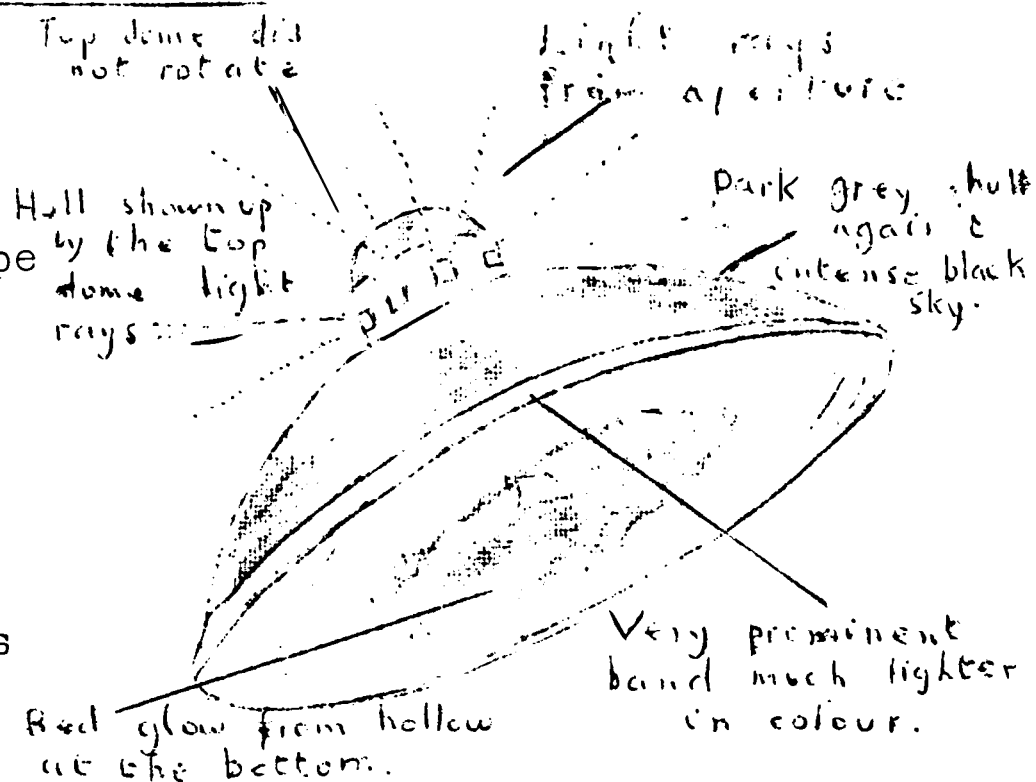 Top dome did
not rotate
Light rays
from aperture
Hull shown up
by the top
dome light
rays
pe
Dark grey hull
against
intense black
sky.
s
Very prominent
band much lighter
in colour.
Red glow from hollow
at the bottom.